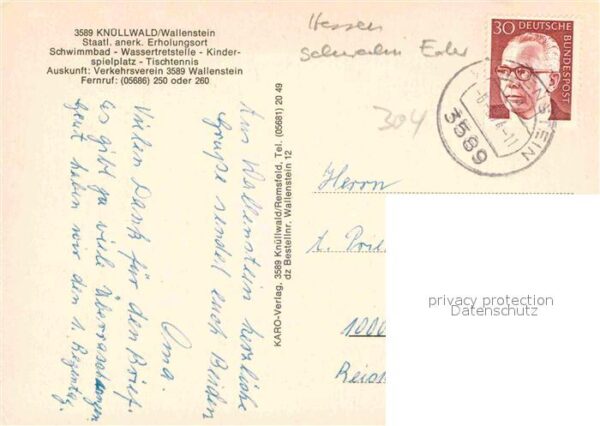 3589 KNÜLLWALD/Wallenstein
Staatl. anerk. Erholungsort
Schwimmbad - Wassertretstelle - Kinder-
spielplatz - Tischtennis
Auskunft: Verkehrsverein 3589 Wallenstein
Fernruf: (05686) 250 oder 260
Hessen
Schwalm Eder
304
30 DEUTSCHE
BUNDESPOST
3589
Aus Wallenstein herzliche
Grüße sendet euch Beiden
Oma.
Vielen Dank für den Brief.
Es gibt ja viele Überraschungen
heut haben wir den 1. Regentag.
KARO-Verlag, 3589 Knüllwald/Remsfeld, Tel. (05681) 20 49
dz Bestellnr. Wallenstein 12
Herrn
1000
privacy protection
Datenschutz